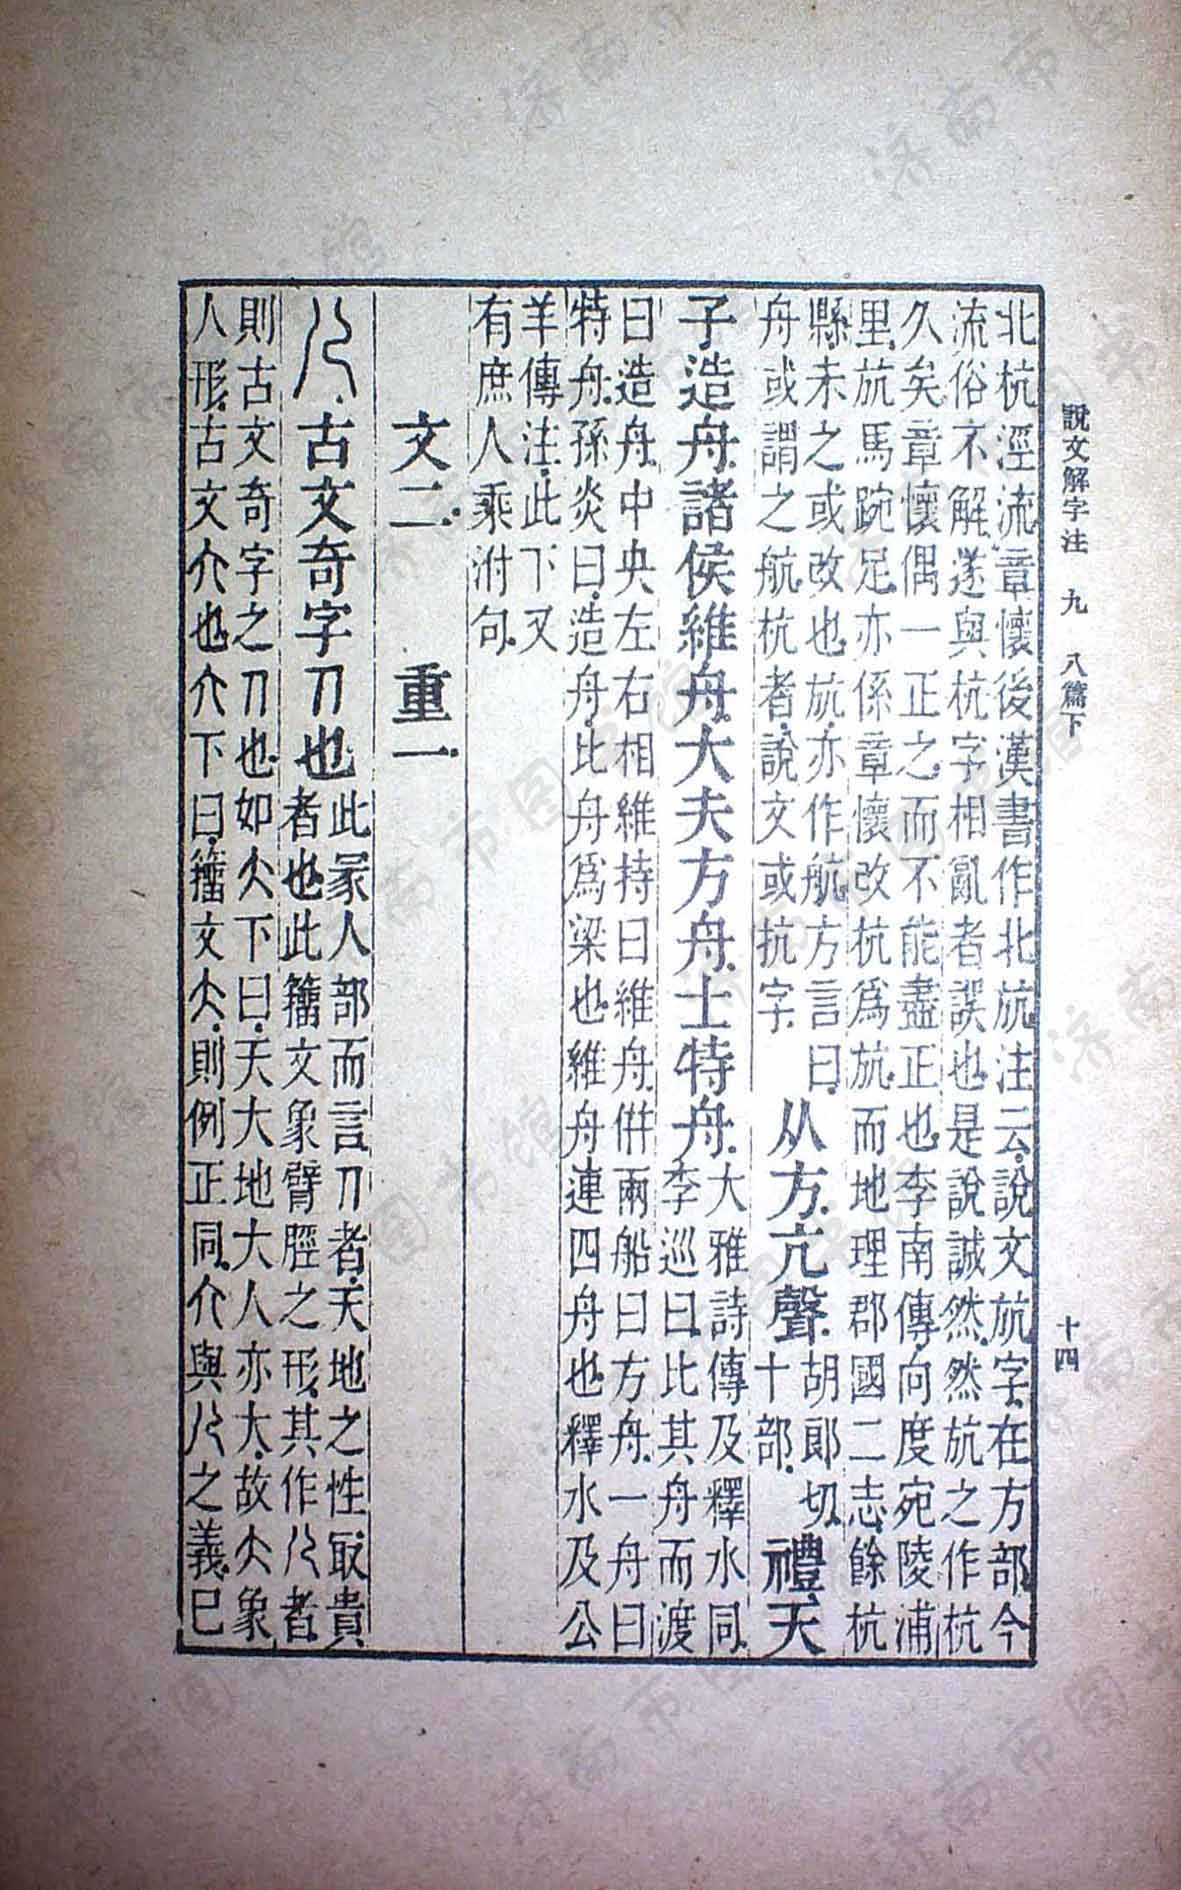 說文解字注 九 八篇下 十四
北杭涇流章懷後漢書作北斻注云說文斻字在方部今
流俗不解遂與杭字相亂者誤也是說誠然然斻之作杭
久矣章懷偶一正之而不能盡正也李南傳向度宛陵浦
里斻馬踠足亦係章懷改杭爲斻而地理郡國二志餘杭
縣未之或改也斻亦作航方言曰
舟或謂之航杭者說文或抗字
从方亢聲
胡郎切
十部
禮天
子造舟諸侯維舟大夫方舟士特舟
大雅詩傳及釋水同
李巡曰比其舟而渡
曰造舟中央左右相維持曰維舟倂兩船曰方舟一舟曰
特舟孫炎曰造舟比舟爲梁也維舟連四舟也釋水及公
羊傳注此下又
有庶人乘泭句
文二 重一
儿古文奇字人也
此冡人部而言人者天地之性冣貴
者也此籒文象臂脛之形其作儿者
則古文奇字之人也如大下曰天大地大人亦大故大象
人形古文亣也亣下曰籒文大則例正同亣與儿之義已